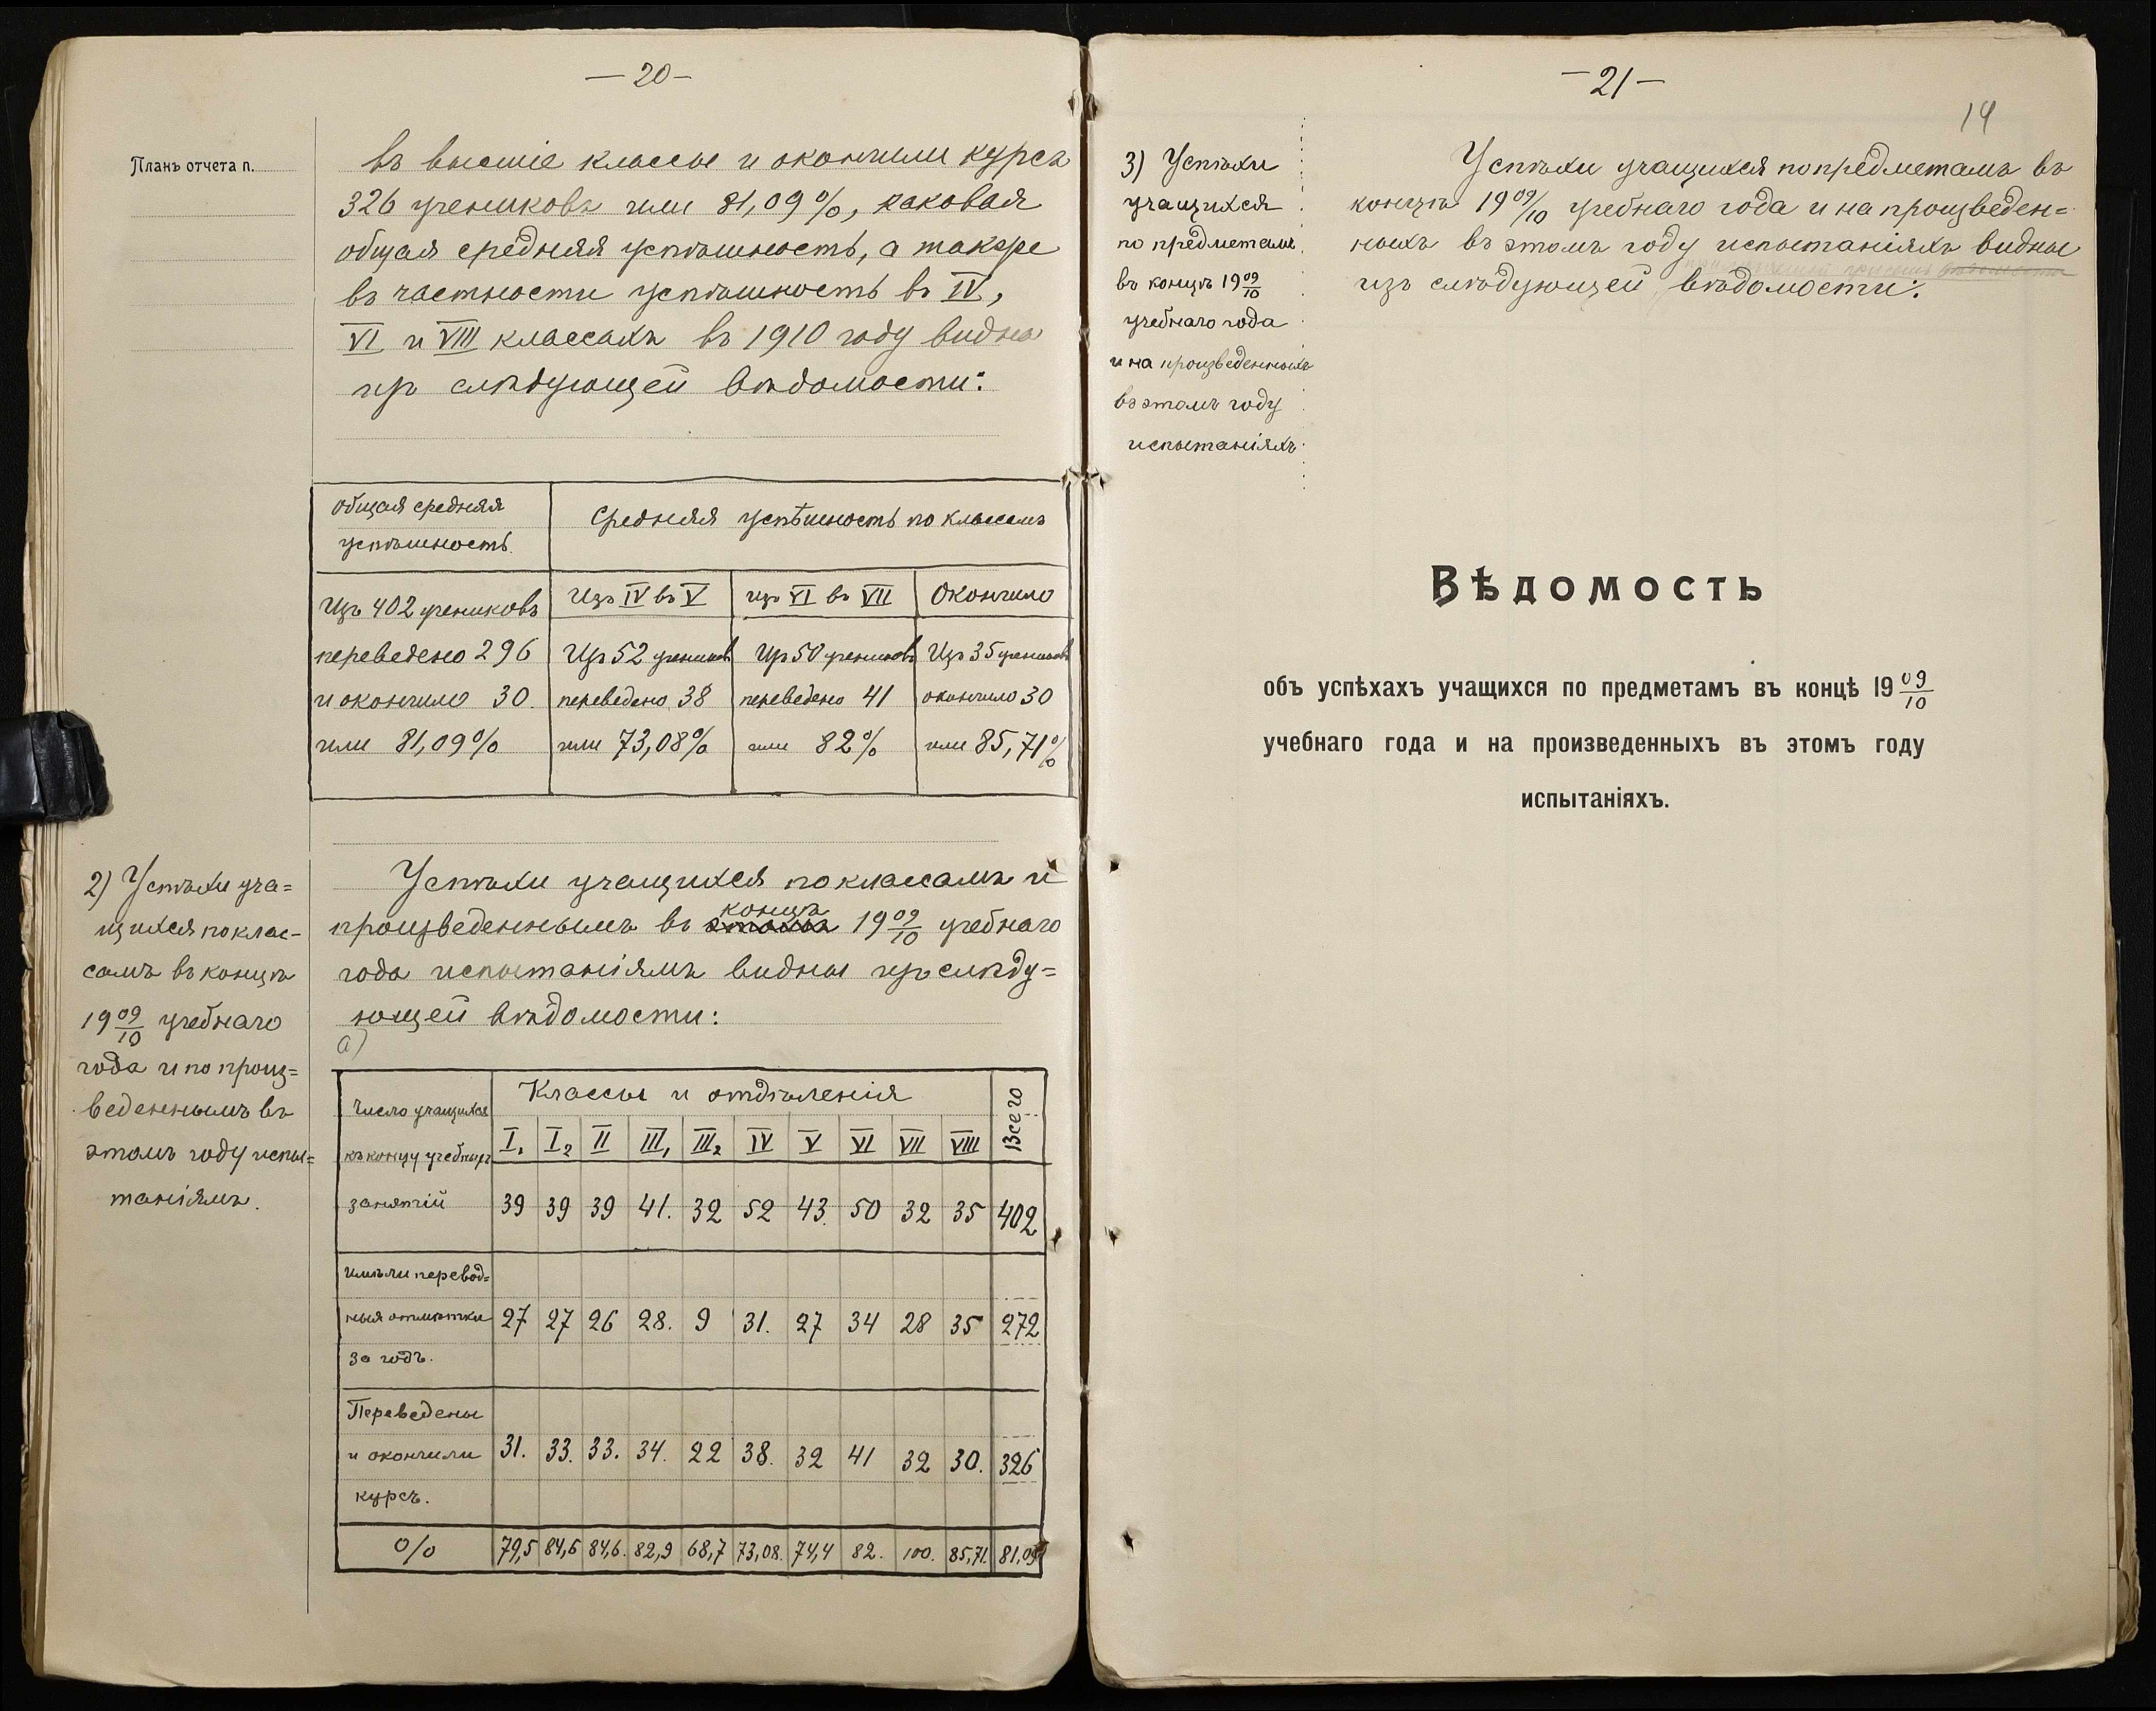 — 20 —
Планъ отчета п.
въ высшіе классы и окончили курсъ
326 учениковъ или 81,09%, каковая
общая средняя успѣшность, а также
въ частности успѣшность въ IV,
VI и VIII классахъ въ 1910 году видна
изъ слѣдующей вѣдомости:
Общая средняя успѣшность. | Средняя успѣшность по классамъ
Изъ IV въ V | изъ VI въ VII | Окончило
Изъ 402 учениковъ
переведено 296 | Изъ 52 учениковъ | Изъ 50 учениковъ | Изъ 35 учениковъ
и окончило 30. | переведено 38 | переведено 41 | окончило 30
или 81,09% | или 73,08% | или 82% | или 85,71%
2) Успѣхи уча=
щихся по клас-
самъ въ концѣ
19 09/10 учебнаго
года и по произ=
веденнымъ въ
этомъ году испы=
таніямъ.
Успѣхи учащихся по классамъ и
произведеннымъ въ концѣ 19 09/10 учебнаго
года испытаніямъ видны изъ слѣду=
ющей вѣдомости:
а)
Число учащихся | Классы и отдѣленія | Всего
къ концу учебныхъ | I₁ | I₂ | II | III₁ | III₂ | IV | V | VI | VII | VIII
занятій | 39 | 39 | 39 | 41. | 32 | 52 | 43. | 50 | 32 | 35 | 402
Имѣли перевод=
ныя отмѣтки | 27 | 27 | 26 | 28. | 9 | 31. | 27 | 34 | 28 | 35 | 272
за годъ.
Переведены
и окончили | 31. | 33. | 33. | 34. | 22 | 38. | 32 | 41 | 32 | 30. | 326
курсъ.
0/0 | 79,5 | 84,6 | 84,6. | 82,9 | 68,7 | 73,08. | 74,4 | 82. | 100. | 85,71. | 81,09
— 21 —
14
3) Успѣхи
учащихся
по предметамъ
въ концѣ 19 09/10
учебнаго года
и на произведенныхъ
въ этомъ году
испытаніяхъ.
Успѣхи учащихся по предметамъ въ
концѣ 19 09/10 учебнаго года и на произведен=
ныхъ въ этомъ году испытаніяхъ видны
изъ слѣдующей вѣдомости:
Вѣдомость
объ успѣхахъ учащихся по предметамъ въ концѣ 19 09/10
учебнаго года и на произведенныхъ въ этомъ году
испытаніяхъ.